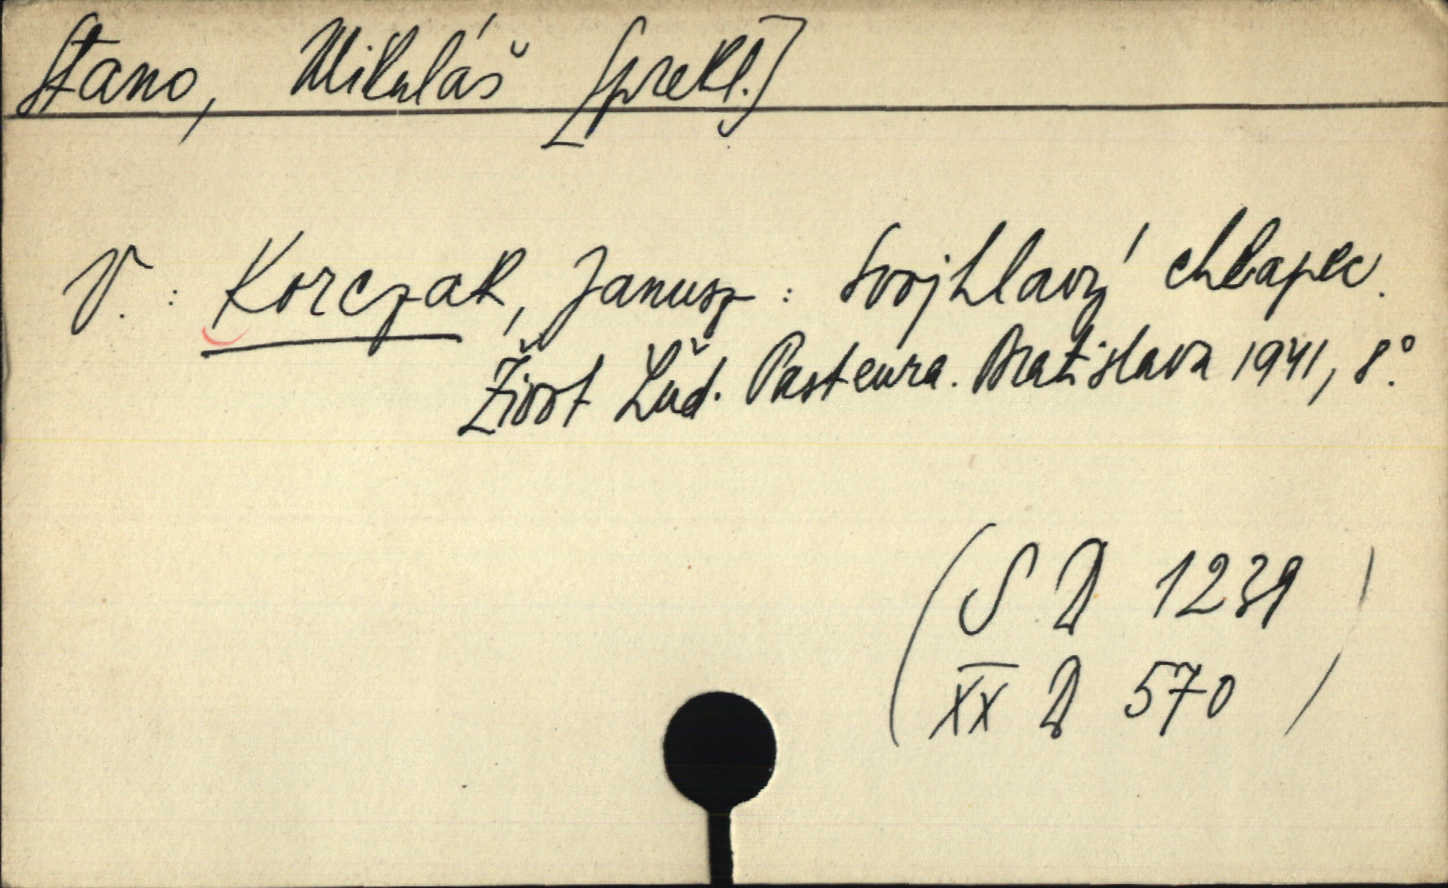 Stano, Mikuláš [prekl.]
V. : Korczak, Janusz : Svojhlavý chlapec.
Život Ľud. Pasteura. Bratislava 1941, 8°.
(S D 1239
XX D 570)